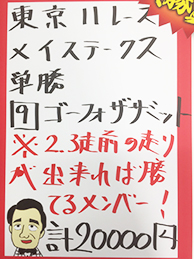 東京11レース
メイステークス
単勝
9 ゴーフォザサミット
※2.3走前の走り
が出来れば勝
てるメンバー!
計20000円